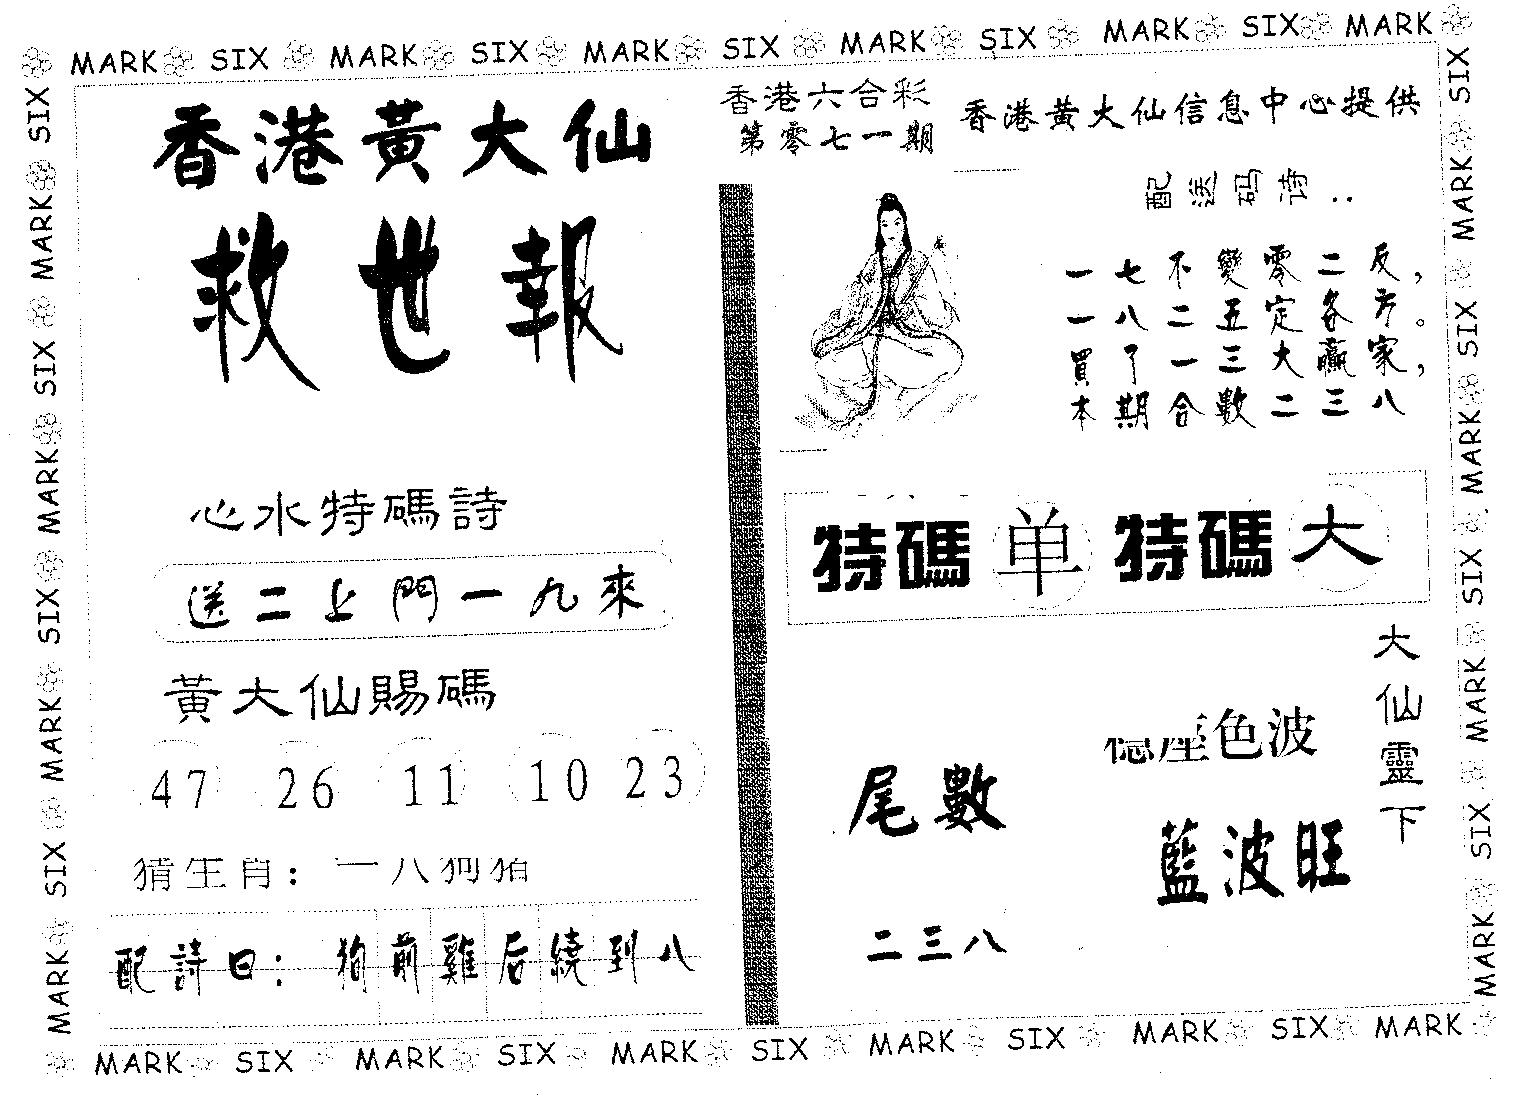 MARK SIX MARK SIX MARK SIX MARK SIX MARK SIX MARK
香港黃大仙
救世報
心水特碼詩
送二上門一九來
黃大仙賜碼
47 26 11 10 23
猜生肖: 一八狗猪
配詩曰: 狗前雞后繞到八
香港六合彩
第零七一期
香港黃大仙信息中心提供
配送码诗..
一七不變零二反,
一八二五定各方。
買了一三大贏家,
本期合數二三八
特碼 单 特碼 大
大仙靈下
色波
藍波旺
尾數
二三八
SIX MARK SIX MARK SIX MARK SIX MARK
SIX MARK SIX MARK SIX MARK SIX MARK
MARK SIX MARK SIX MARK SIX MARK SIX MARK SIX MARK